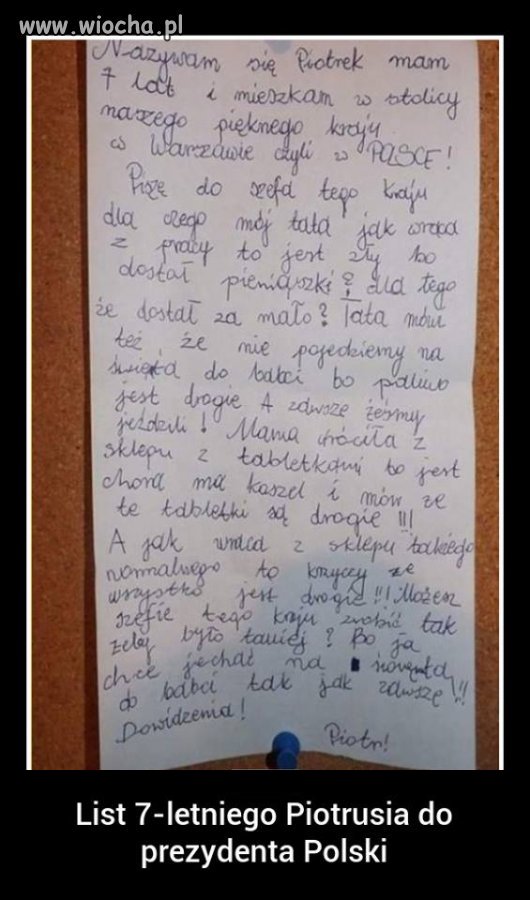 www.wiocha.pl
Nazywam się Piotrek mam
7 lat i mieszkam w stolicy
naszego pięknego kraju
w Warszawie czyli w POLSCE!
Piszę do szefa tego kraju
dla czego mój tata jak wraca
z pracy to jest zły bo
dostał pieniążki? dla tego
że dostał za mało? Tata mówi
też, że nie pojedziemy na
święta do babci bo paliwo
jest drogie A zawsze żeśmy
jeździli! Mama wróciła z
sklepu z tabletkami bo jest
chora ma kaszel i mówi że
te tabletki są drogie!!!
A jak wraca z sklepu takiego
normalnego to krzyczy że
wszystko jest drogie!!! Możesz
szefie tego kraju zrobić tak
żeby było taniej? Bo ja
chce jechać na święta
do babci tak jak zawsze!!!
Dowidzenia!
Piotr!
List 7-letniego Piotrusia do
prezydenta Polski